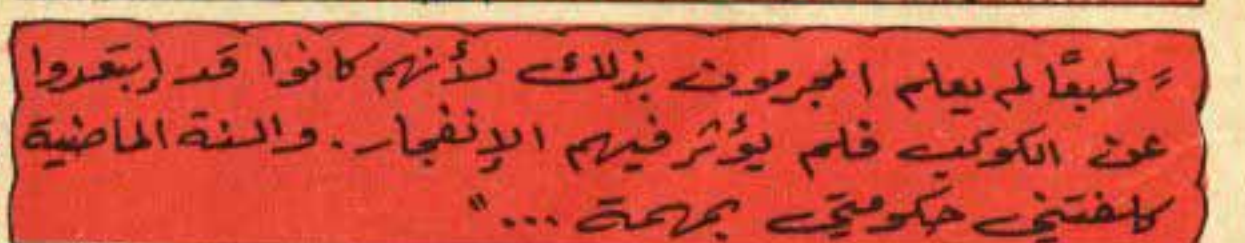 " طبعًا لم يعلم المجرمون بذلك لأنهم كانوا قد إبتعدوا
عن الكوكب فلم يؤثر فيهم الإنفجار. والسنة الماضية
كلفتني حكومتي بمهمة ..."